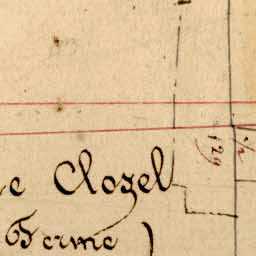 e Clozel
Ferme )
129